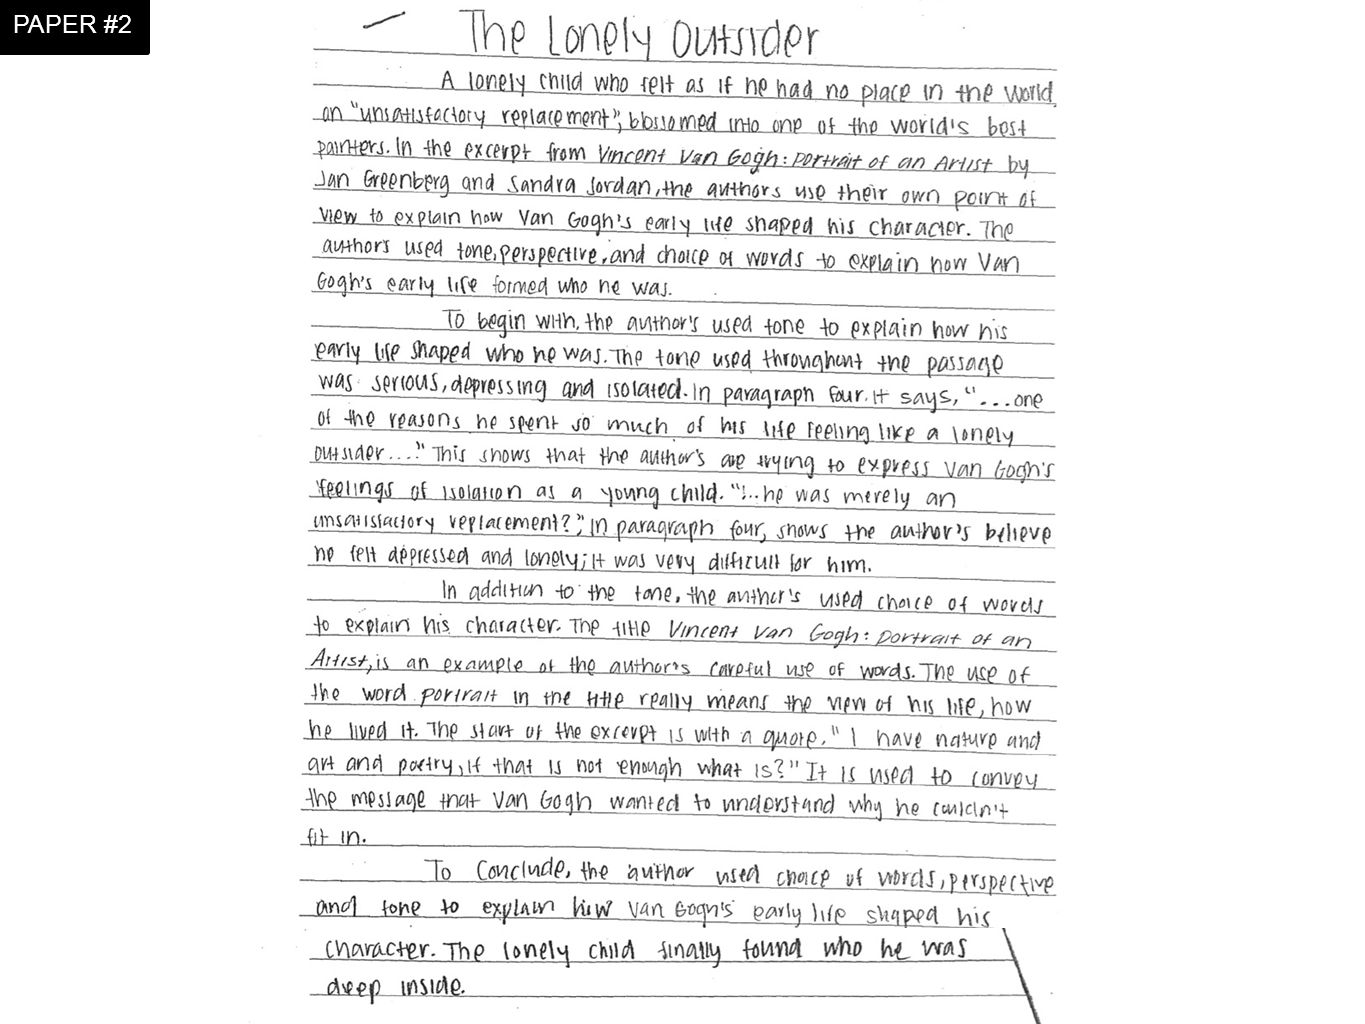 PAPER #2
The Lonely Outsider
A lonely child who felt as if he had no place in the world,
an "unsatisfactory replacement", blossomed into one of the world's best
painters. In the excerpt from Vincent Van Gogh: Portrait of an Artist by
Jan Greenberg and Sandra Jordan, the authors use their own point of
view to explain how Van Gogh's early life shaped his character. The
authors used tone, perspective, and choice of words to explain how Van
Gogh's early life formed who he was.
To begin with, the author's used tone to explain how his
early life shaped who he was. The tone used throughout the passage
was serious, depressing and isolated. In paragraph four, it says, "...one
of the reasons he spent so much of his life feeling like a lonely
outsider...." This shows that the author's are trying to express Van Gogh's
feelings of isolation as a young child. "...he was merely an
unsatisfactory replacement?", in paragraph four, shows the author's believe
he felt depressed and lonely; it was very difficult for him.
In addition to the tone, the author's used choice of words
to explain his character. The title Vincent Van Gogh: Portrait of an
Artist, is an example of the author's careful use of words. The use of
the word portrait in the title really means the view of his life, how
he lived it. The start of the excerpt is with a quote, "I have nature and
art and poetry, if that is not enough what is?" It is used to convey
the message that Van Gogh wanted to understand why he couldn't
fit in.
To Conclude, the author used choice of words, perspective
and tone to explain how Van Gogh's early life shaped his
character. The lonely child finally found who he was
deep inside.